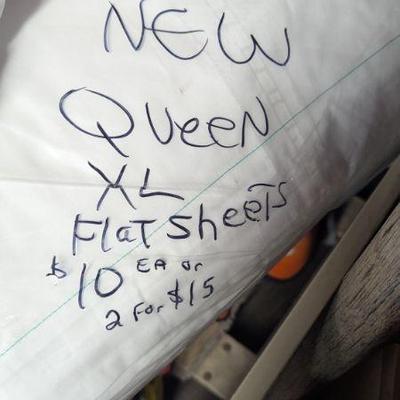 NEW
QUEEN
XL
Flat Sheets
$10 EA or
2 For $15